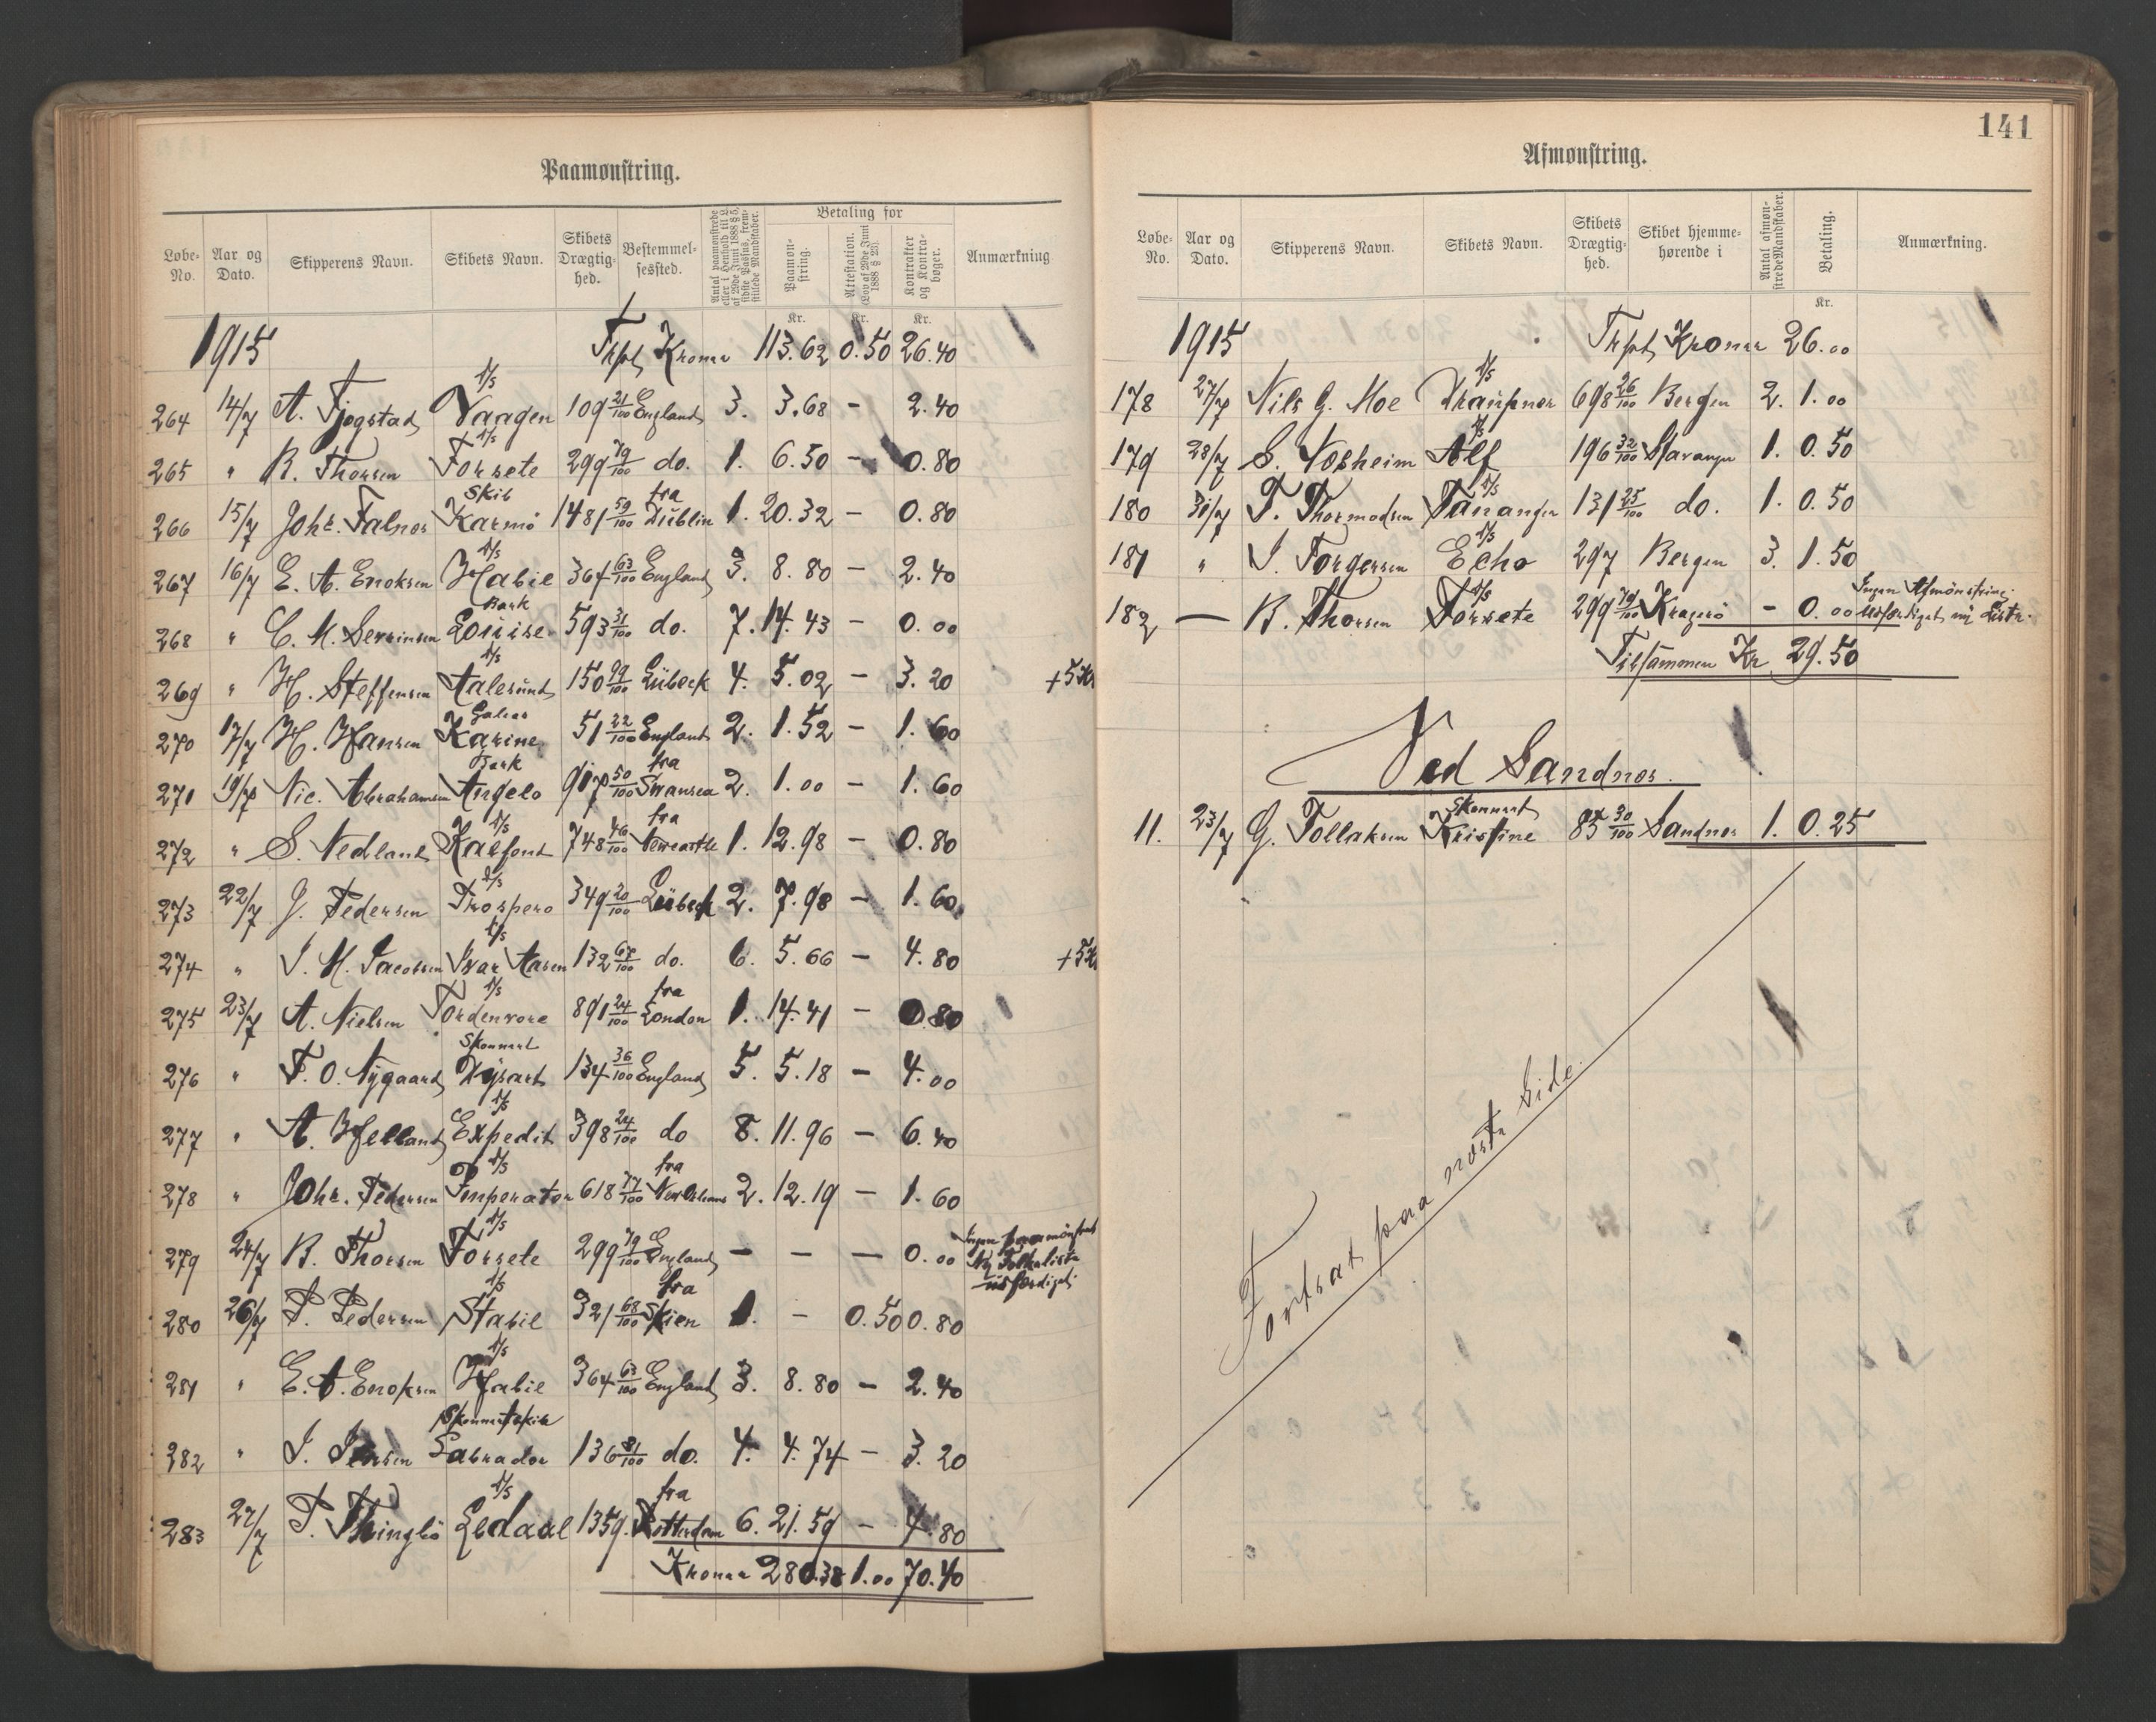 Paamønstring.
Løbe-No. Aar og Dato. Skipperens Navn. Skibets Navn. Skibets Drægtig-hed. Bestemmel-sessted. Antal paamønstrede eller i Henhold til L. af 29de Juni 1888 § 5, sidste Passus, frem-stillede Mandskaber. Betaling for Paamøn-string. Attestation. (Lov af 29de Juni 1888 § 23). Kontrakter og Kontra-bøger. Anmærkning
Kr. Kr. Kr.
1915 Trspt Kroner 113.62 0.50 26.40
264 14/7 A. Fjogstad D/S Vaagen 109 21/100 England 3. 3.68 — 2.40
265 " B. Thorsen D/S Forsete 299 79/100 do. 1. 6.50 — 0.80
266 15/7 Johs. Falnes Skib Karmø 1481 59/100 fra Dublin 1. 20.32 — 0.80
267 16/7 E. A. Enoksen D/S Habil 364 63/100 England 3. 8.80 — 2.40
268 " C. M. Severinsen Bark Louise 593 31/100 do. 7. 14.43 — 0.00
269 " H. Steffensen D/S Aalesund 150 99/100 Lübeck 4. 5.02 — 3.20 +5Kr
270 17/7 H. Hansen Galeas Karine 51 22/100 England 2. 1.52 — 1.60
271 19/7 Nic. Abrahamsen Bark Angelo 917 50/100 fra Swansea 2. 1.00 — 1.60
272 " S. Nedland D/S Kalfond 748 46/100 fra Newcastle 1. 12.98 — 0.80
273 22/7 G. Pedersen D/S Prospero 349 20/100 Lübeck 2. 7.98 — 1.60
274 " J. M. Jacobsen D/S Ivar Aasen 132 67/100 do. 6. 5.66 — 4.80 +5Kr
275 23/7 A. Nielsen D/S Tordenvore 891 24/100 fra London 1. 14.41 — 0.80
276 " T. O. Nygaard Skonnert Dysart 134 36/100 England 5. 5.18 — 4.00
277 " A. Helland D/S Expedit 398 24/100 do 8. 11.96 — 6.40
278 " Johs. Pedersen D/S Imperator 618 77/100 fra New Orleans 2. 12.19 — 1.60
279 24/7 B. Thorsen D/S Forsete 299 79/100 England — — — 0.00 Ingen paamønstret Ny Folkeliste udfærdiget
280 26/7 P. Pedersen D/S Stabil 321 68/100 fra Skien 1. — 0.50 0.80
281 " E. A. Enoksen D/S Habil 364 63/100 England 3. 8.80 — 2.40
282 " J. Iversen Skonnertskib Labrador 136 81/100 do. 4. 4.74 — 3.20
283 27/7 P. Thinglø D/S Ledaal 1359. fra Rotterdam 6. 21.59 — 4.80
Kroner 280.38 1.00 70.40
141
Afmønstring.
Løbe-No. Aar og Dato. Skipperens Navn. Skibets Navn. Skibets Drægtig-hed. Skibet hjemme-hørende i Antal afmøn-strede Mandskaber. Betaling. Anmærkning.
Kr.
1915 Trspt Kroner 26.00
178 27/7 Nils G. Moe D/S Draupner 698 26/100 Bergen 2. 1.00
179 28/7 S. Vosheim D/S Alf 196 32/100 Stavanger 1. 0.50
180 31/7 T. Thormodsen D/S Tananger 131 25/100 do. 1. 0.50
181 " J. Torgersen D/S Echo 297 Bergen 3. 1.50
182 — B. Thorsen D/S Forsete 299 79/100 Kragerø — 0.00 Ingen Afmønstring. Udfærdiget ny Liste.
Tilsammen Kr. 29.50
Ved Sandnes.
11. 23/7 G. Tollaksen Skonnert Kristine 85 30/100 Sandnes 1. 0.25
Fortsat paa næste Side